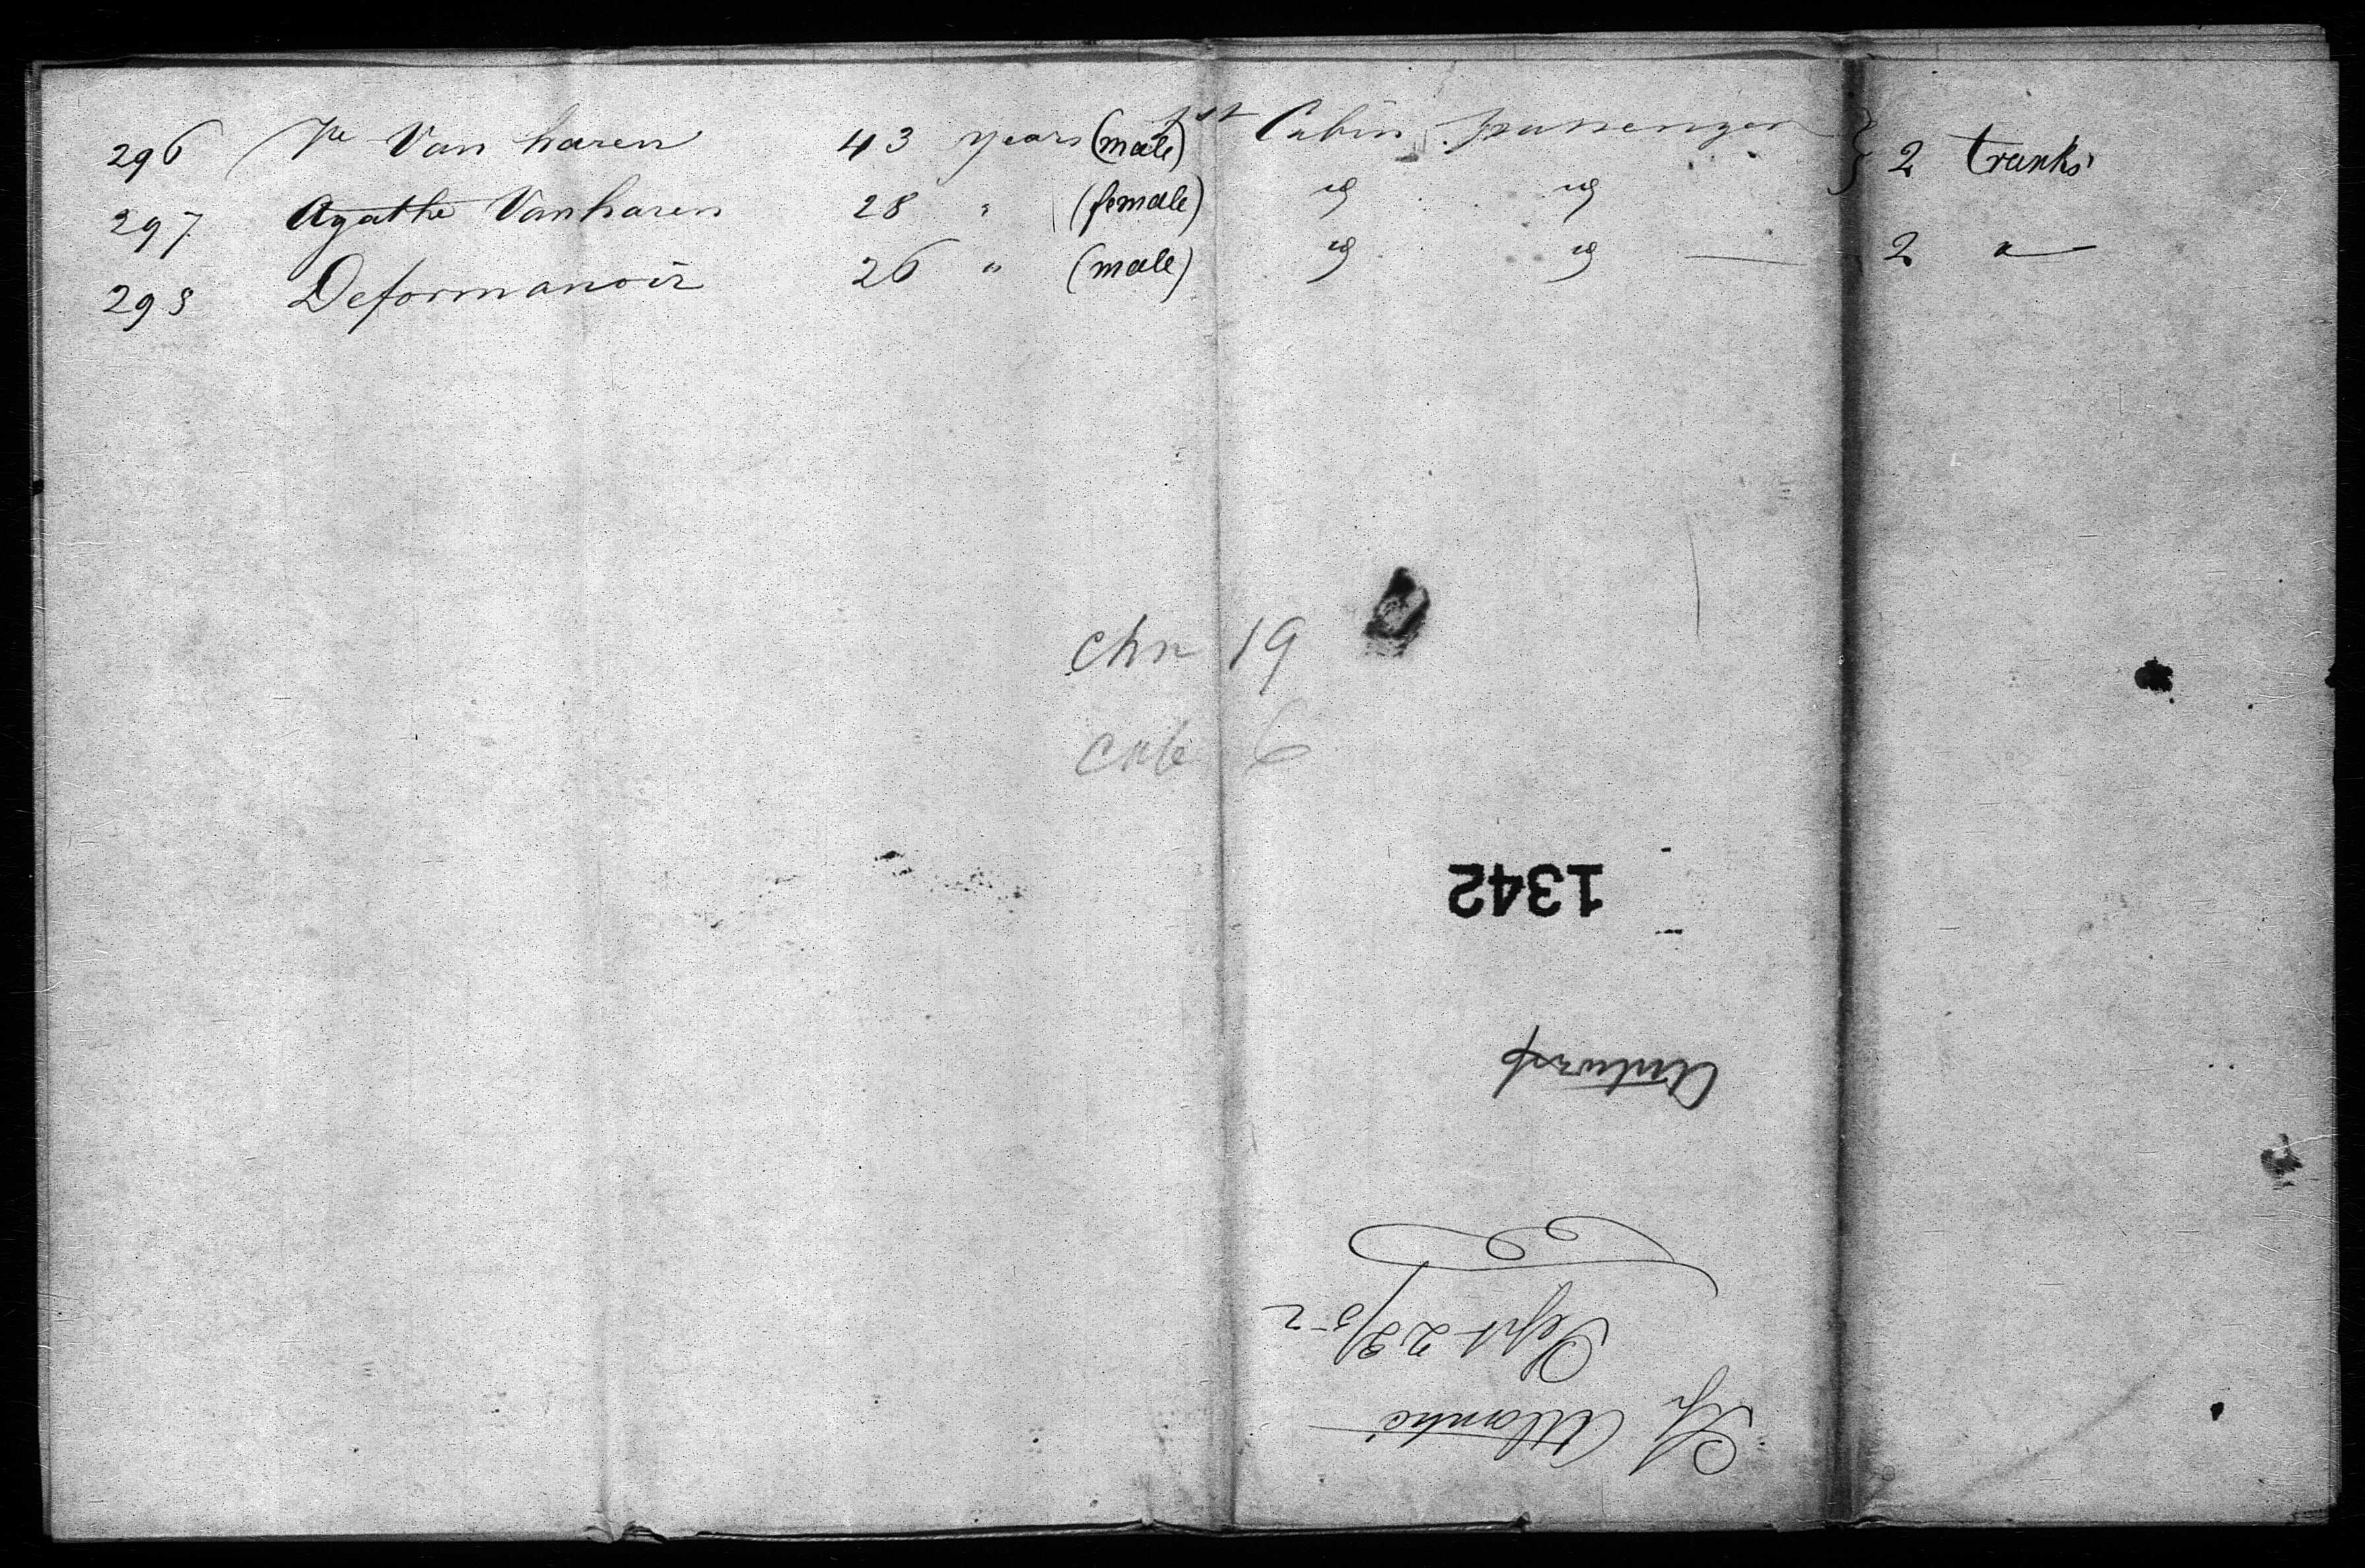 296 Van haren 43 years (male) 1st Cabin passenger } 2 trunks
297 Agathe Vanharen 28 " (female) id id
298 Deformanoir 26 " (male) id id — 2 "
chn 19
cab 6
1342
Antwerp
Sept 23/52
Sh Atlantic